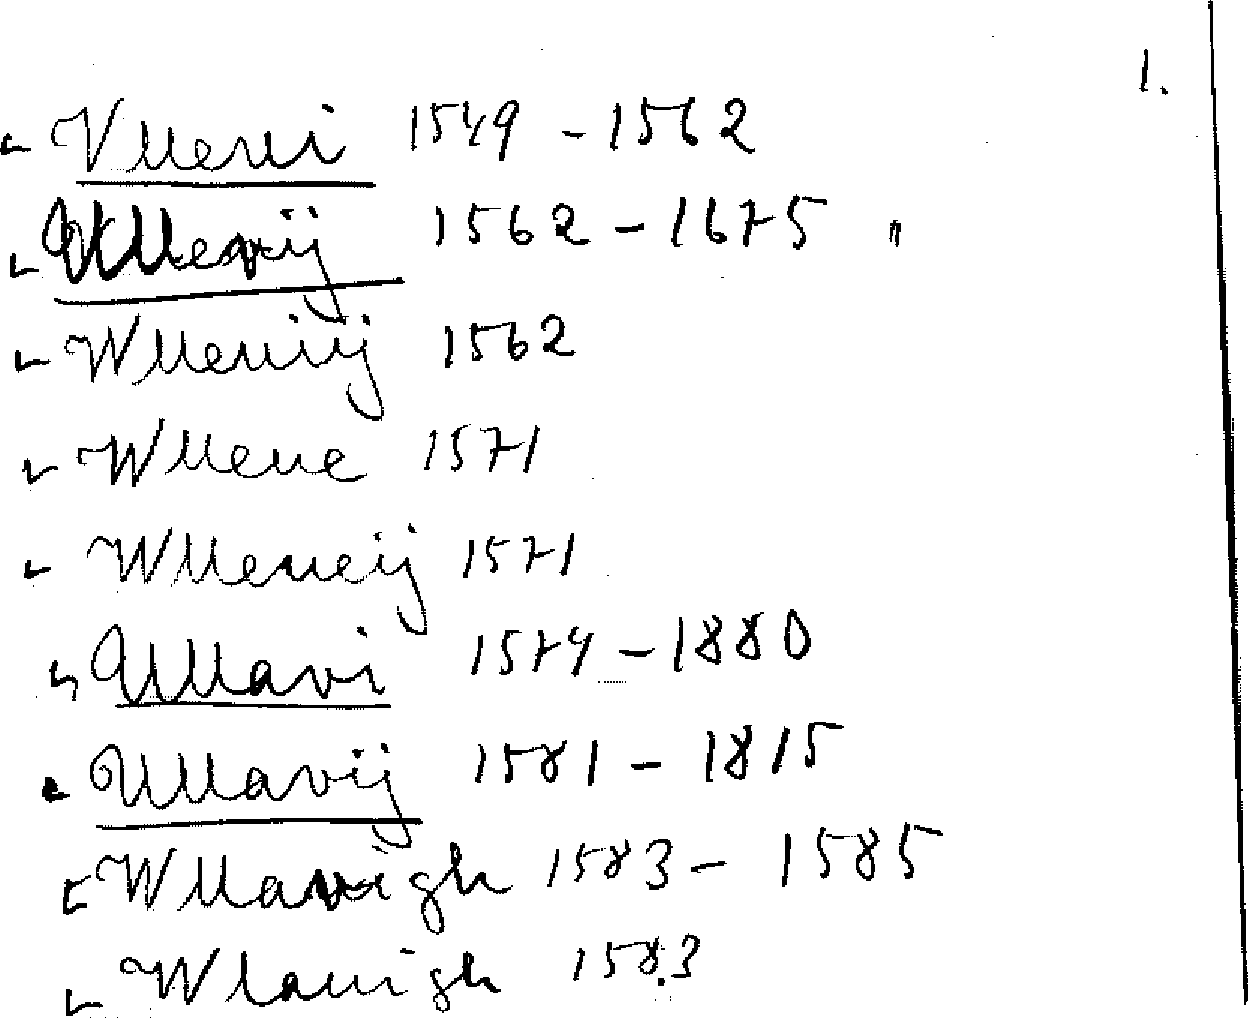 1.
Vlleni 1549 - 1562
Ullevij 1562 - 1675 "
Wllenij 1562
Wllene 1571
Wlleneij 1571
Ullavi 1574 - 1880
Ullavij 1581 - 1815
Wllavigh 1583 - 1585
Wlauigh 1583